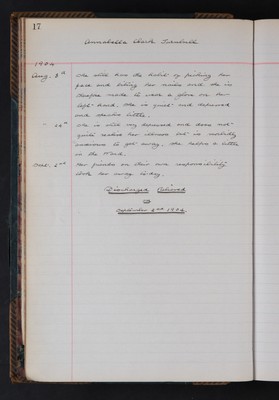 17
Annabella Clark Turnbull
1904
Aug. 8th She still has the habit of picking her
face and biting her nails and she is
therefore made to wear a glove on her
left hand. She is quiet and depressed
and speaks little.
" She is still very depressed and does not
quite realise her illness but is
anxious to get away. She helps a little
in the Ward.
2nd Her friends on their own responsibility
took her away to-day.
Discharged Relieved
on
2nd 1904.